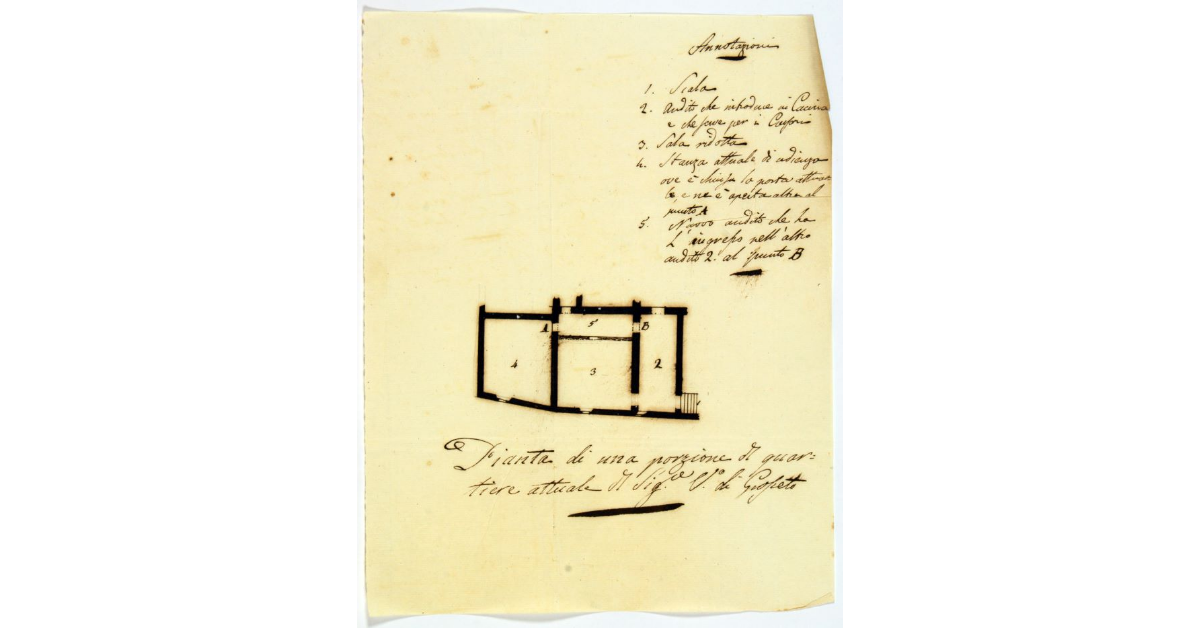 Annotazioni
1. Scala
2. Andito che introduce in Cucina
e che serve per i
3. Sala ridotta
4. Stanza attuale di udienza
ove è chiusa la porta attua=
le, e ne è aperta altra al
punto A
5. Nuovo andito che ha
L'ingresso nell'altro
andito 2. al punto B
A 5 B
4 3 2
Pianta di una porzione di quar=
tiere attuale di Sig.e di